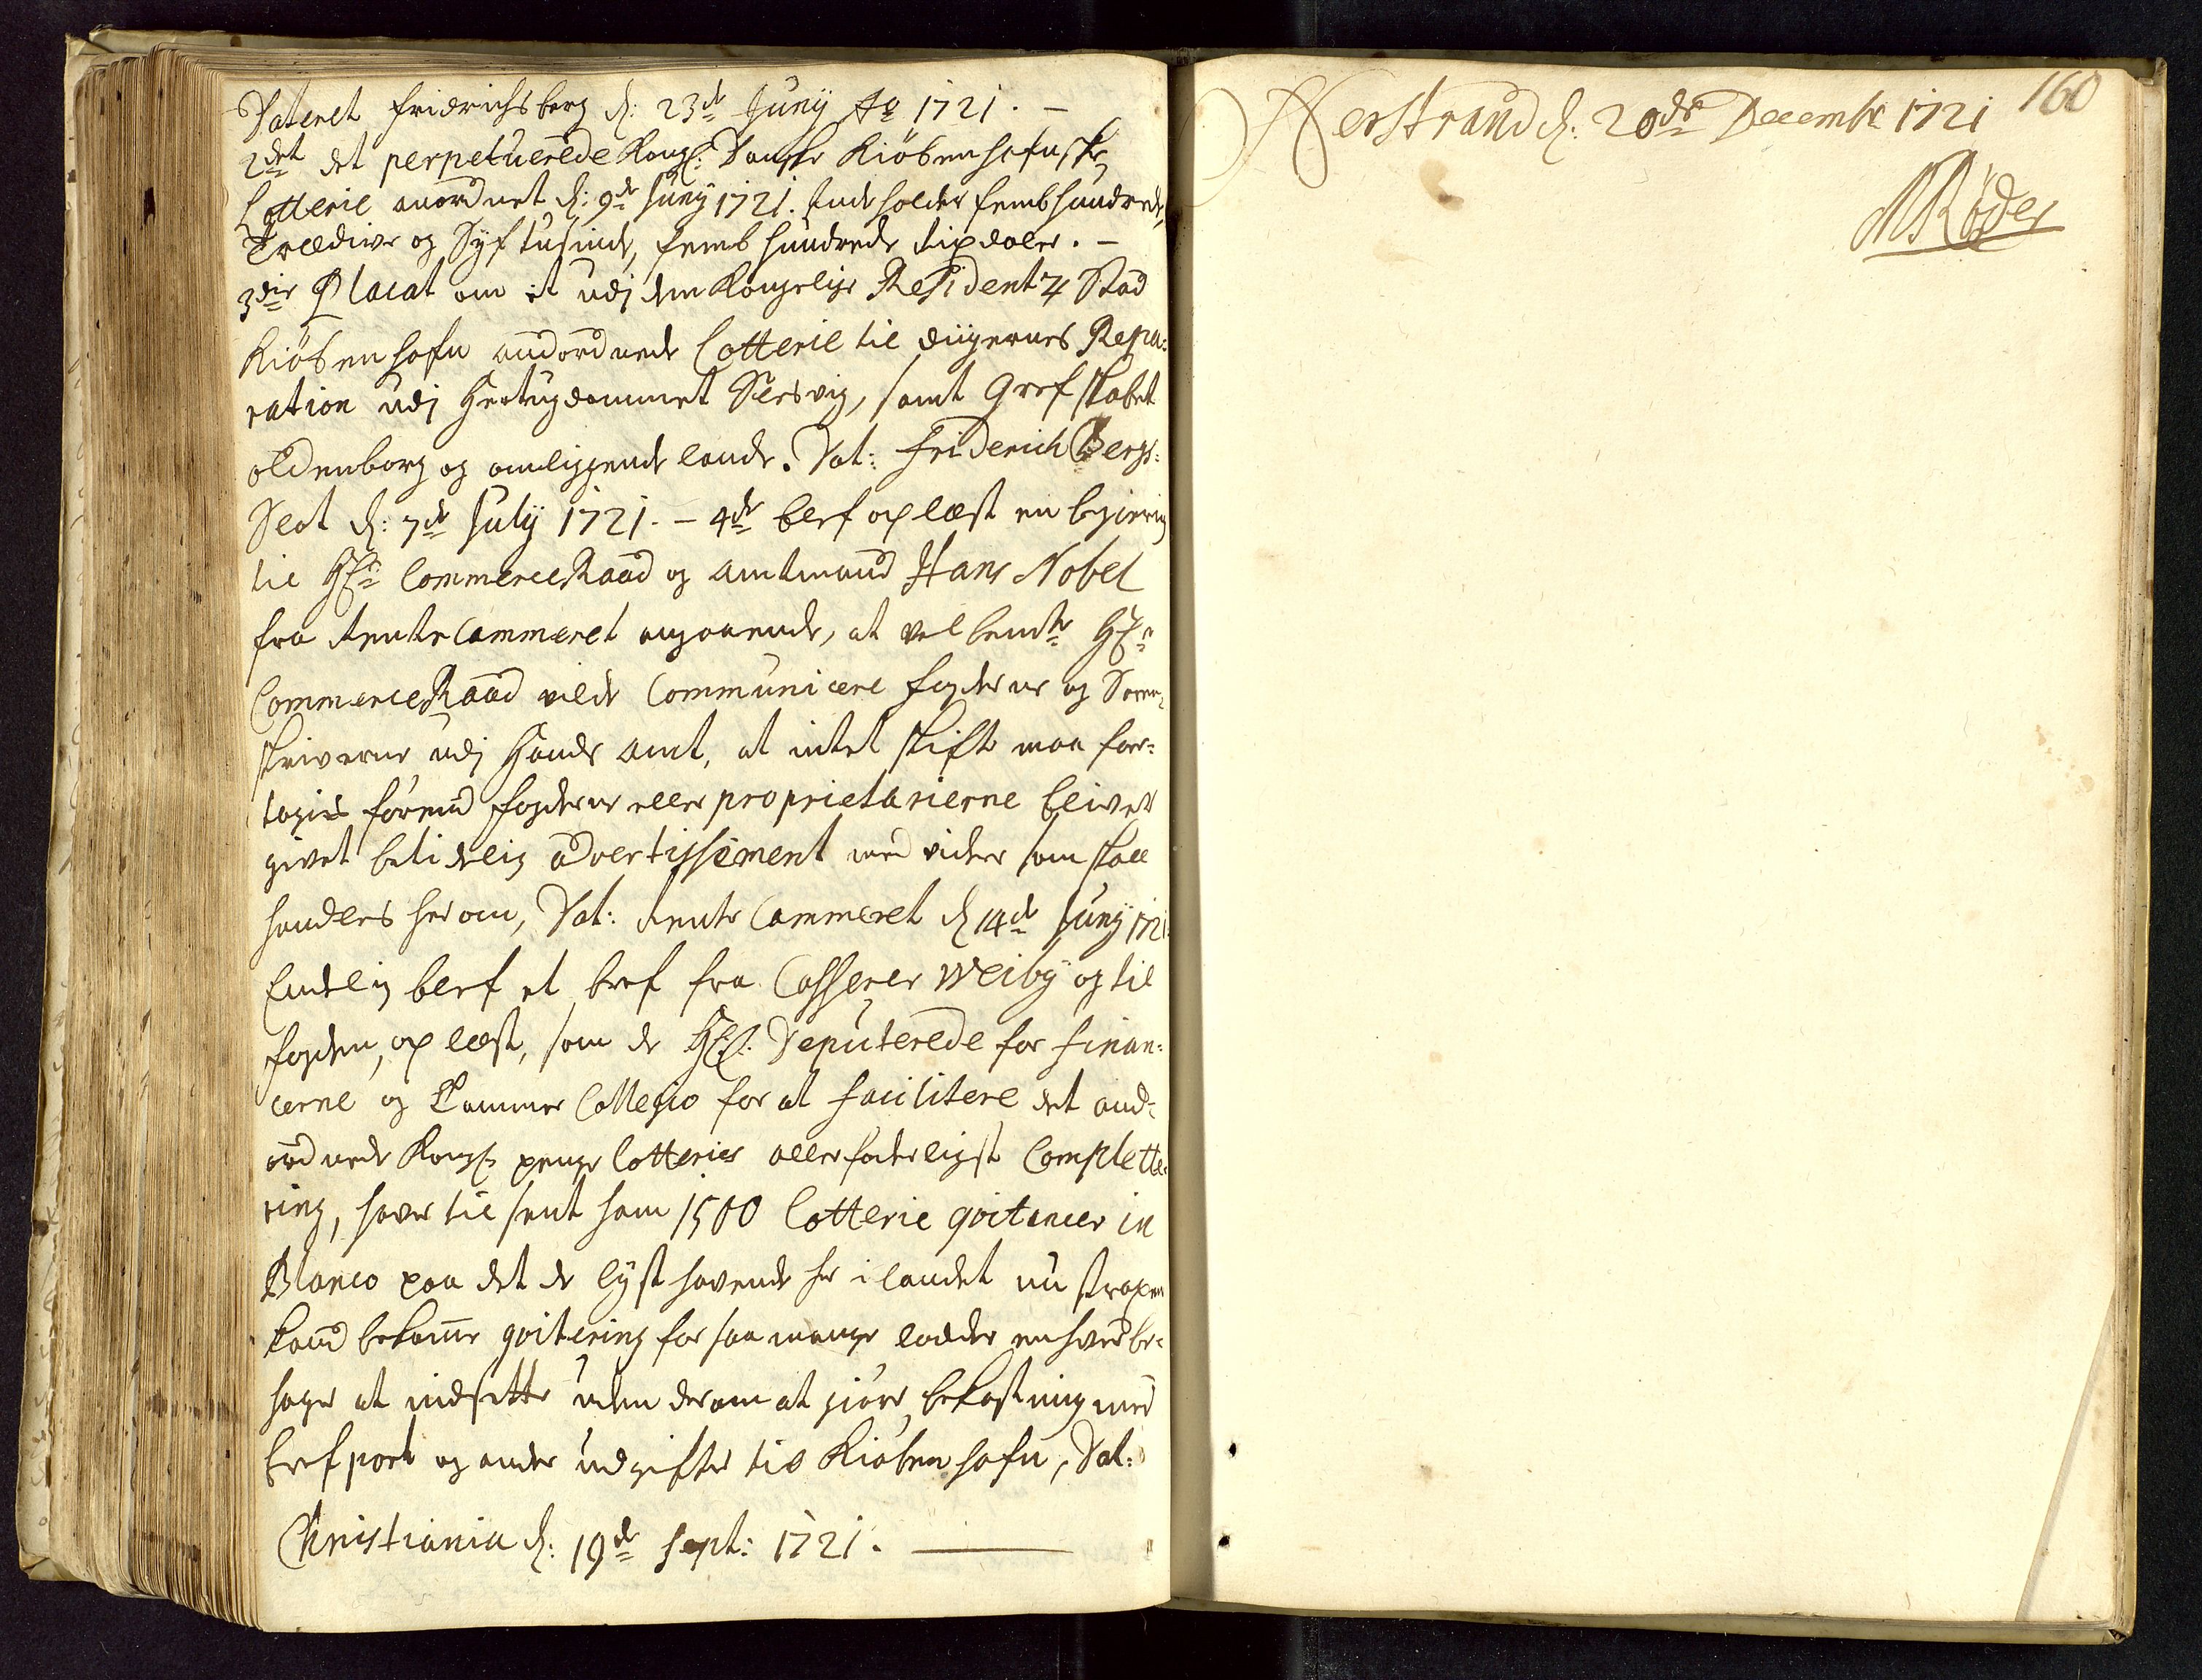 Dateret Fridrichsberg d: 23de Juny Ao 1721. –
2det det perpetuerede Kongl: Danske Kiöbenhafnske
Lotterie anordnet d: 9de Juny 1721. Indeholder fembhundrede,
Trædive og Syf tusinde, femb hundrede Rixdaler. –
3die Placat om et udj dem Kongelige Residentz Stad
Kiöbenhafn andordnede Lotterie til diigernes Repa:
ration udj Hertugdommet Slesvig, samt Grefskabet
oldenborg og omliggende lande. Dat: Friderich Bergs:
Slot d: 7de July 1721. – 4de blef oplæst en begiering
til Hr: CommerceRaad og Amtmand Hans Nobel
fra RenteCammeret angaaende, at velbemte Hr:
CommerceRaad vilde Communicere fogderne og Soren:
skriverne udj Hands Amt, at intet skifte maa fore:
tagis förend fogderne eller proprietarierne bliver
givet betidelig advertissement med videre som skall
handles herom, Dat: Rente Cammeret d 14de Juny 1721.
Endelig blef et bref fra Casserer Weiby og til
fogden, oplæst, som de Hr: Deputerede for Finan:
cerne og Cammer Collegio for at facilitere det and:
ordnede Kongl: penge Lotteries allerfoderligst Complette:
ring, haver tilsent ham 1500 Lotterie qvitancer in
Blanco paa det de lysthavende her i landet nu straxen
kand bekomme qvitering for saa mange lodder enhver be:
hager at indsette uden derom at giöre bekostning med
bref port og andre udgifter til Kiöbenhafn, Dat:
Christiania d: 19de Sept: 1721.
160
Nerstrand d: 20de Decembr 1721
NRöder